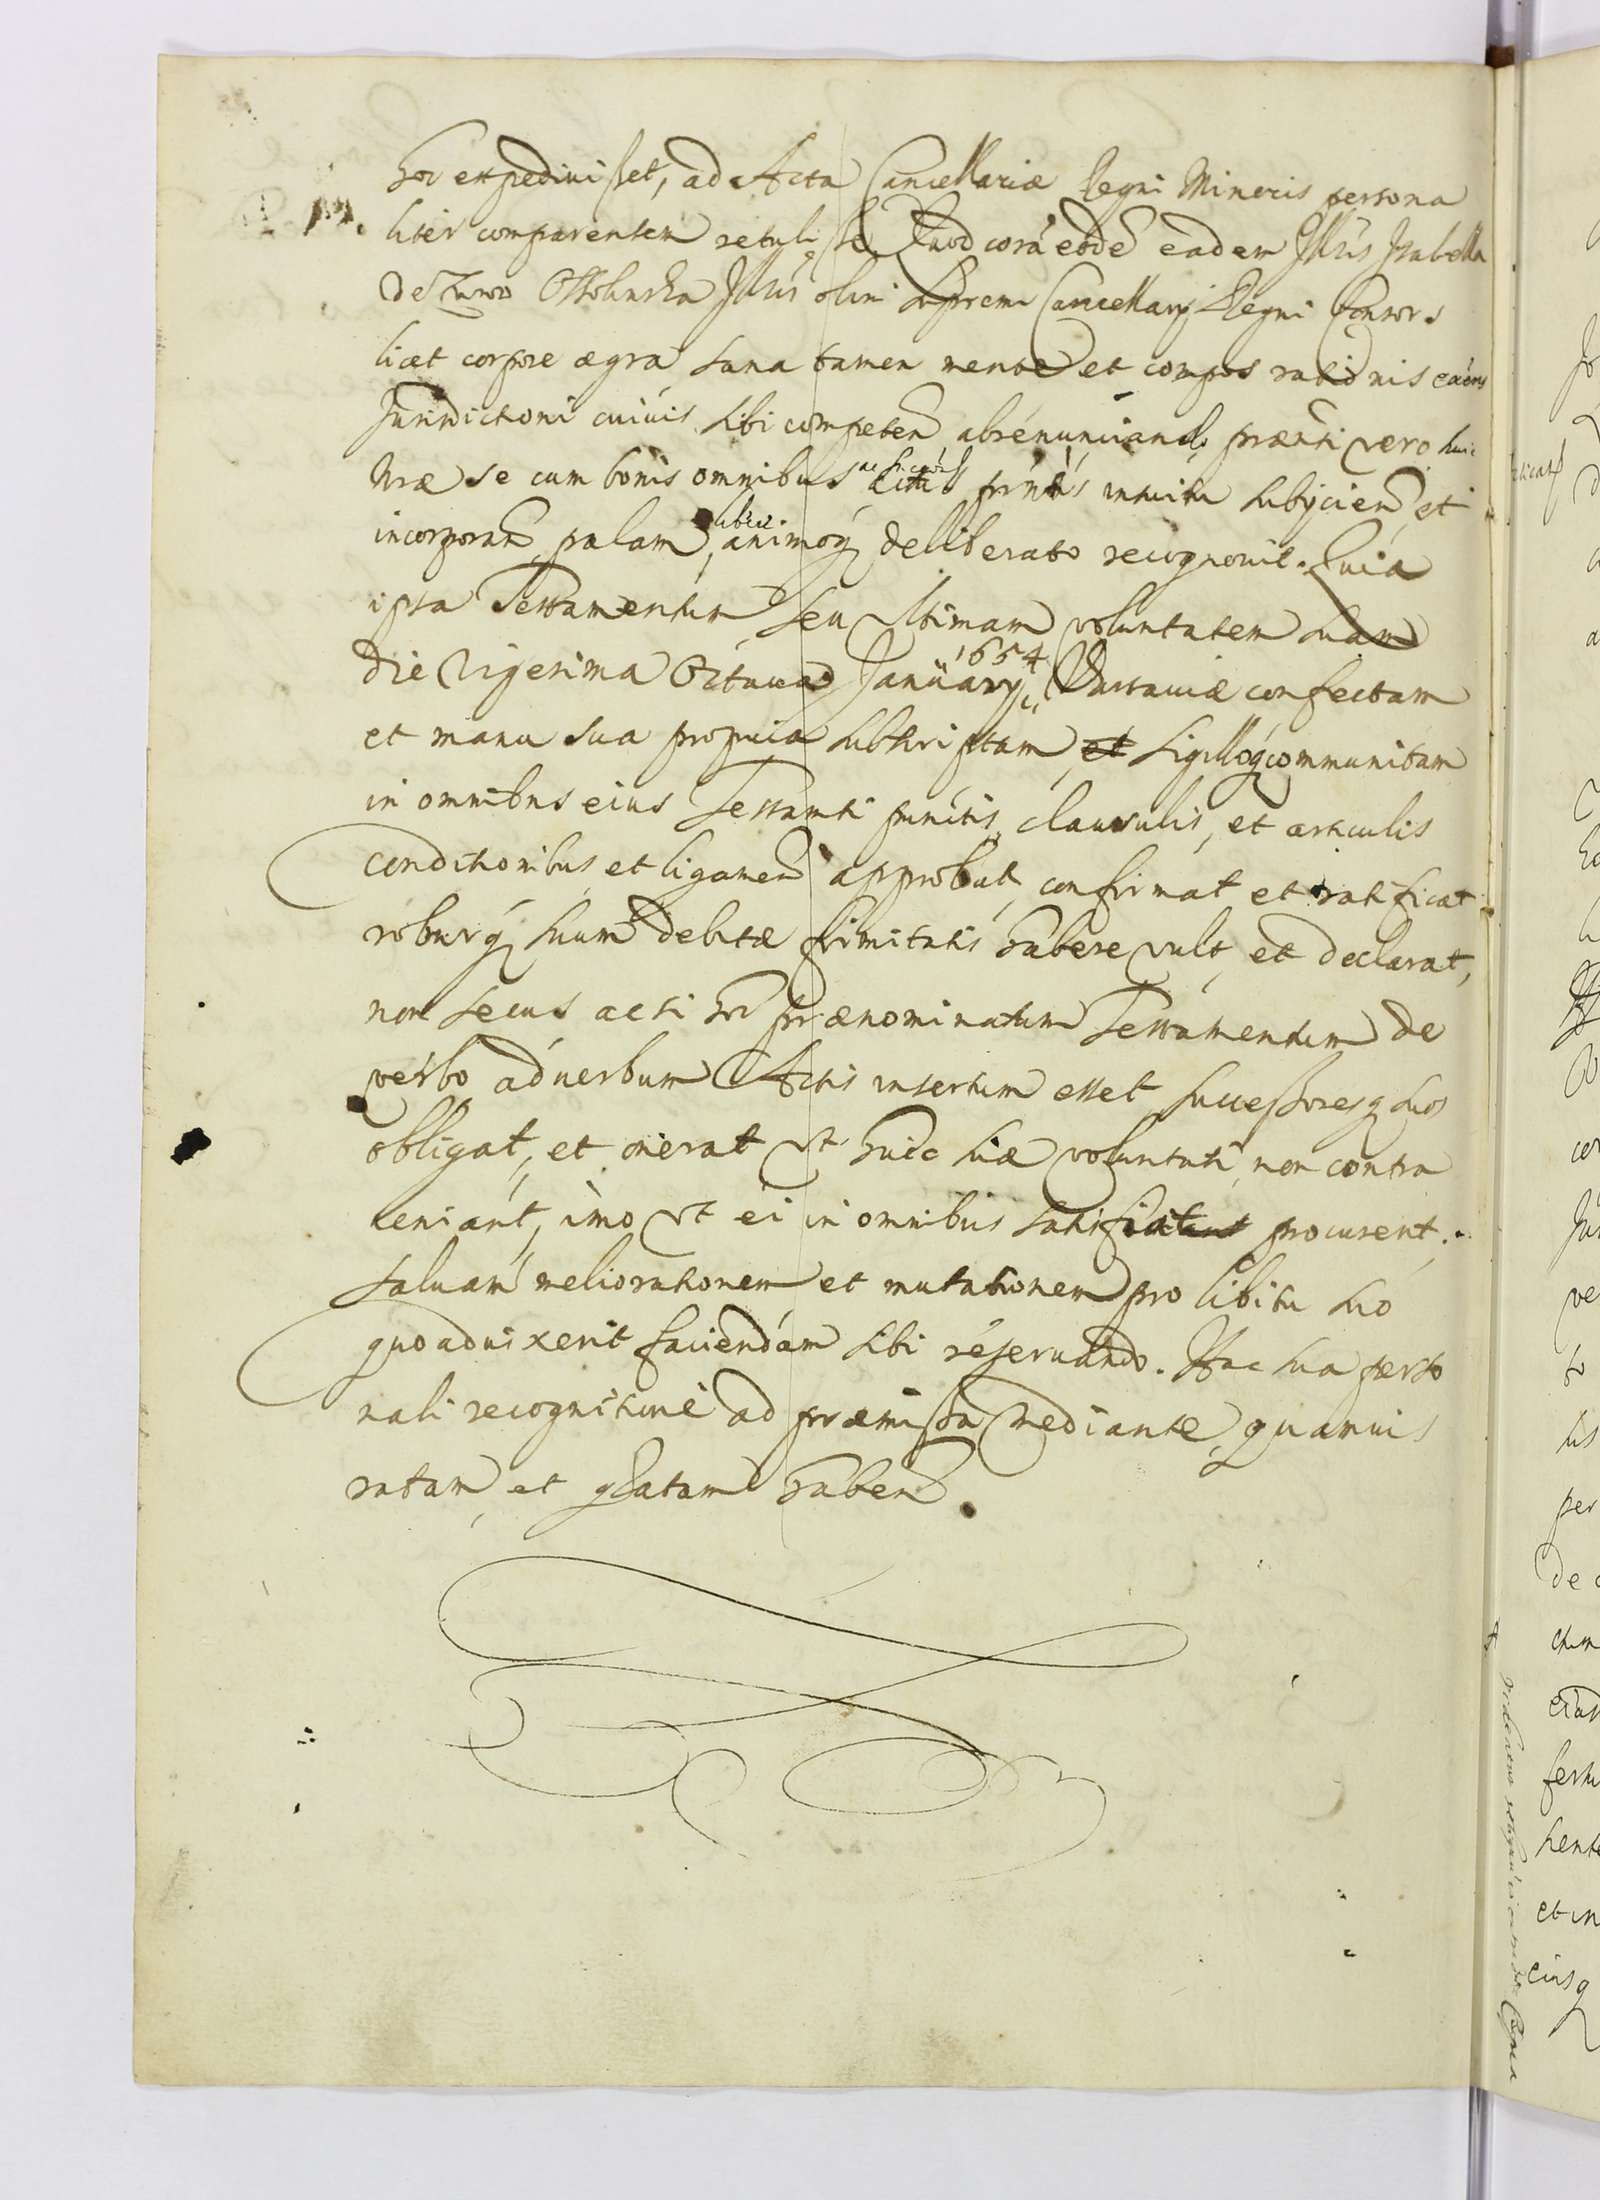 hoc expedivisset, ad Acta Cancellariæ Regni Minoris persona
liter comparentem retulisse Quod corã eode eadem Illris Izabella
de Ossolinska Illris olim Supremi Cancellarij Regni Consors
licet corpore ægra sana tamen mente et compos rationis
Jurisdictioni cuivis sibi competen abrenunciando præsnti vero huic
se cum bonis omnibus prntis intuitu subijcien et
incorporan palam, libere animoq deliberato recognovit. Quia
ipsa Testamentum seu Ultimam voluntatem suam
die Vigesima Octava January 1654 Varsaviæ confectam
et manu sua propria subscriptam et Sigilloq communitam
in omnibus eius Testamti punctis, clausulis, et articulis
conditionibus et ligamen approbat, confirmat et ratificat
roburq suum debitæ firmitatis habere vult, et declarat,
non secus acsi hoc prænominatum Testamentum de
verbo ad verbum Actis insertum esset successoresq suos
obligat, et onerat Ut huic suæ voluntati, non contra
veniant, imo Ut ei in omnibus procurent.
salvam meliorationem et mutationem pro libitu suo
quoad vixerit faciendam sibi reservando. Hac sua perso
nali recognitione ad præmissa mediante, quamvis
ratam, et gratam haben.